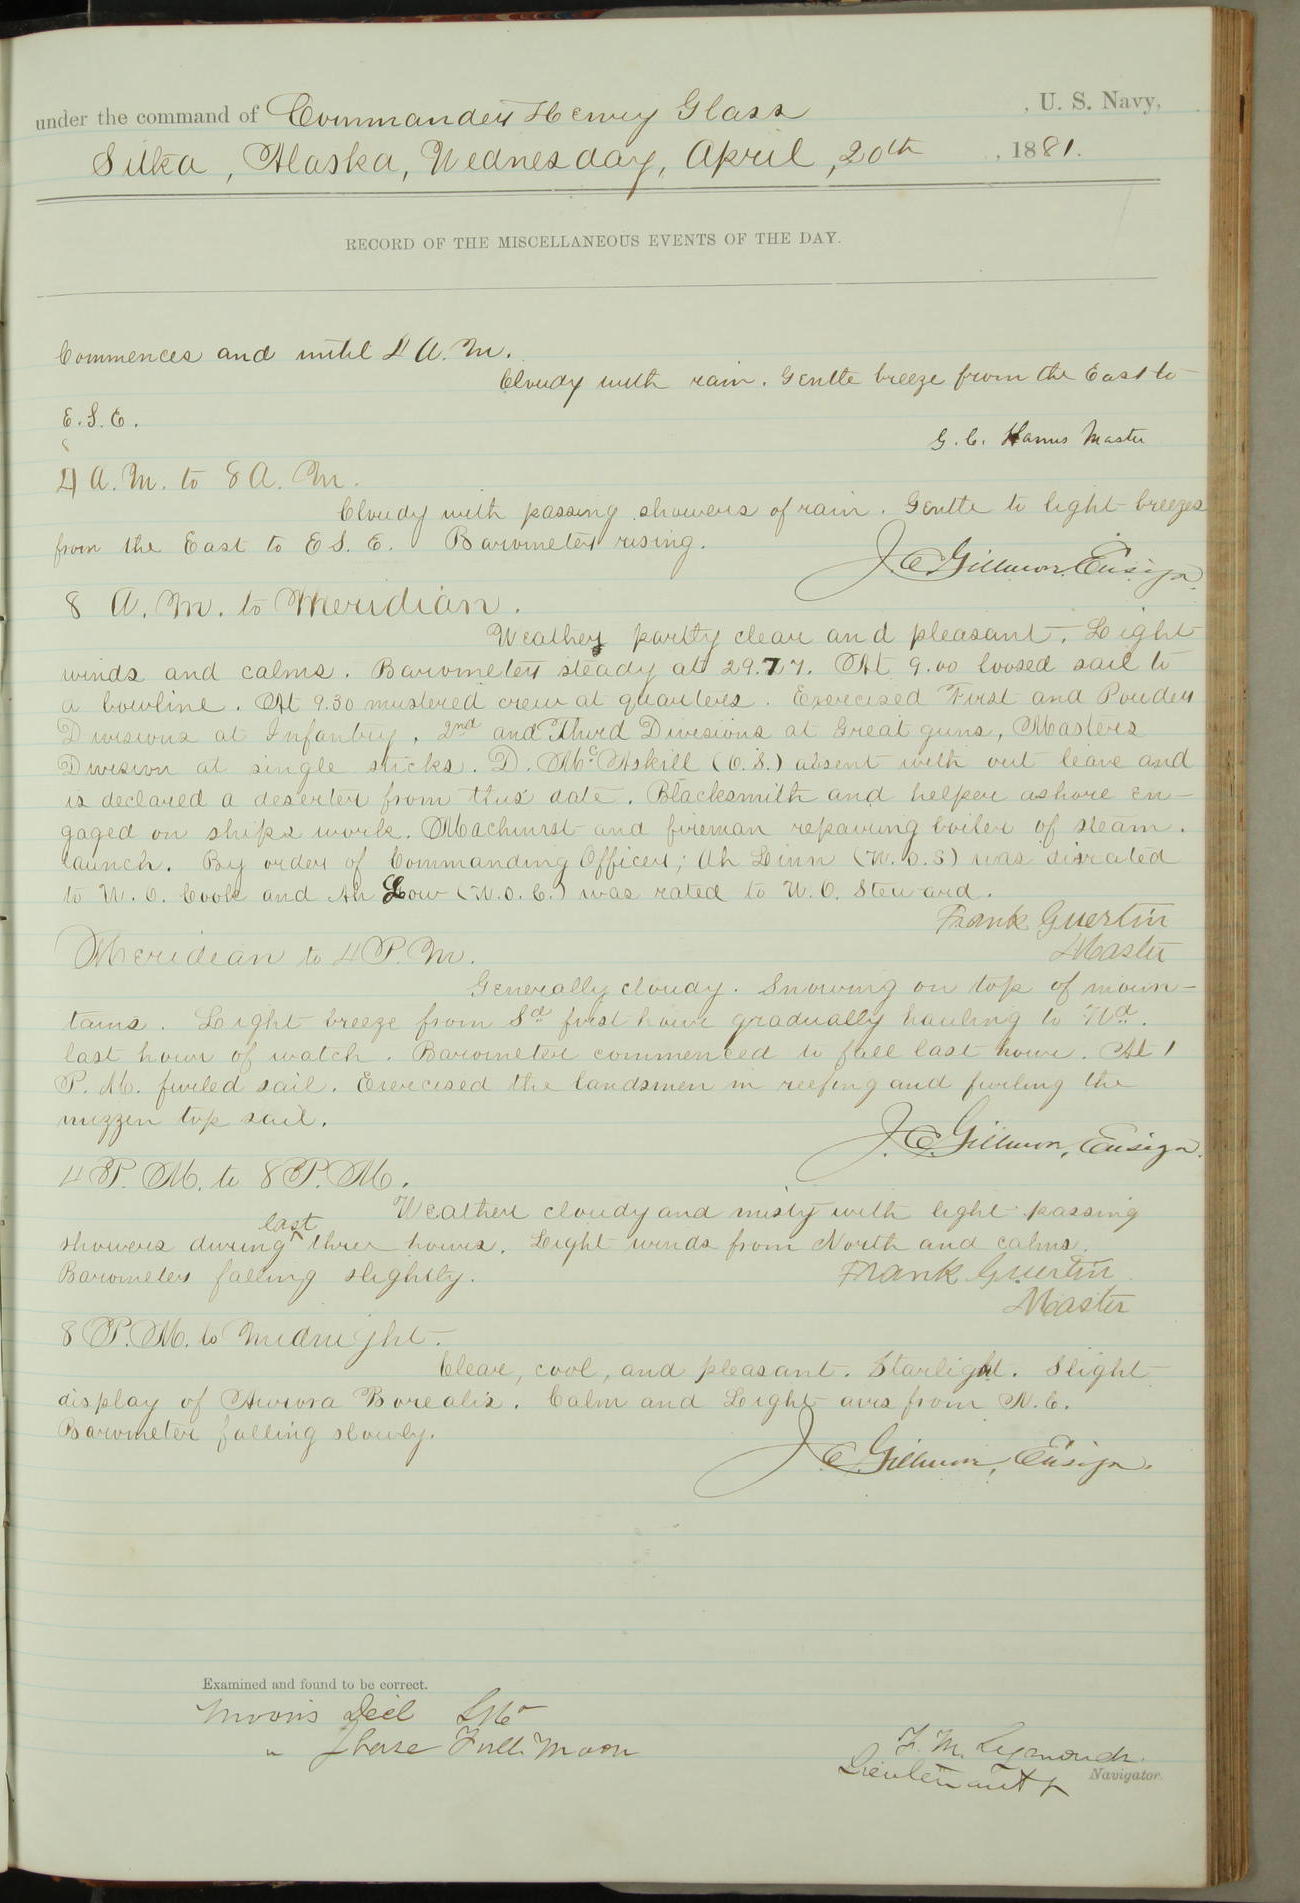 under the command of Commander Henry Glass , U. S. Navy,
Sitka, Alaska, Wednesday, April, 20th , 1881.
RECORD OF THE MISCELLANEOUS EVENTS OF THE DAY.
Commences and until 4 A. M.
Cloudy with rain. Gentle breeze from the East to
E.S.E.
G. C. Hanus Master
4 A. M. to 8 A. M.
Cloudy with passing showers of rain. Gentle to light breezes
from the East to E S. E. Barometer rising.
J. C. Gillmor, Ensign.
8 A. M. to Meridian.
Weather partly clear and pleasant. Light
winds and calms. Barometer steady at 29.77. At 9.00 loosed sail to
a bowline. At 9.30 mustered crew at quarters. Exercised First and Powder
Divisions at Infantry, 2nd and Third Divisions at Great guns, Masters
Division at single sticks. D. McAskill (O.S.) absent with out leave and
is declared a deserter from this date. Blacksmith and helper ashore en-
gaged on ships work. Machinist and fireman repairing boiler of steam.
launch. By order of Commanding Officer; Ah Linn (W.O.S) was disrated
to W. O. Cook and Ah Low (W.O.C.) was rated to W. O. Steward.
Frank Guertin
Master
Meridian to 4 P. M.
Generally cloudy. Snowing on top of moun-
tains. Light breeze from Sd first hour gradually hauling to Nd.
last hour of watch. Barometer commenced to fall last hour. At 1
P. M. furled sail. Exercised the landsmen in reefing and furling the
mizzen top sail.
J. C. Gillmor, Ensign.
4 P. M. to 8 P. M.
Weather cloudy and misty with light passing
showers during last three hours. Light winds from North and calms.
Barometer falling slightly.
Frank Guertin
Master
8 P. M. to Midnight.
Clear, cool, and pleasant. Starlight. Slight
display of Aurora Borealis. Calm and Light airs from N. E.
Barometer falling slowly.
J. C. Gillmor, Ensign.
Examined and found to be correct.
Moon's Decl
" Phase Full Moon
F. M. Symonds.
Lieutenant &
Navigator.